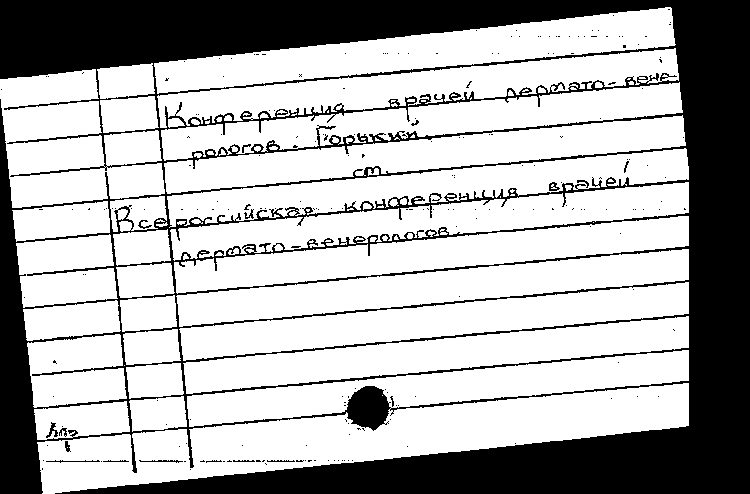 Конференция врачей дермато-вене-
рологов. Горький.
см.
Всероссийская конференция врачей
дермато-венерологов.